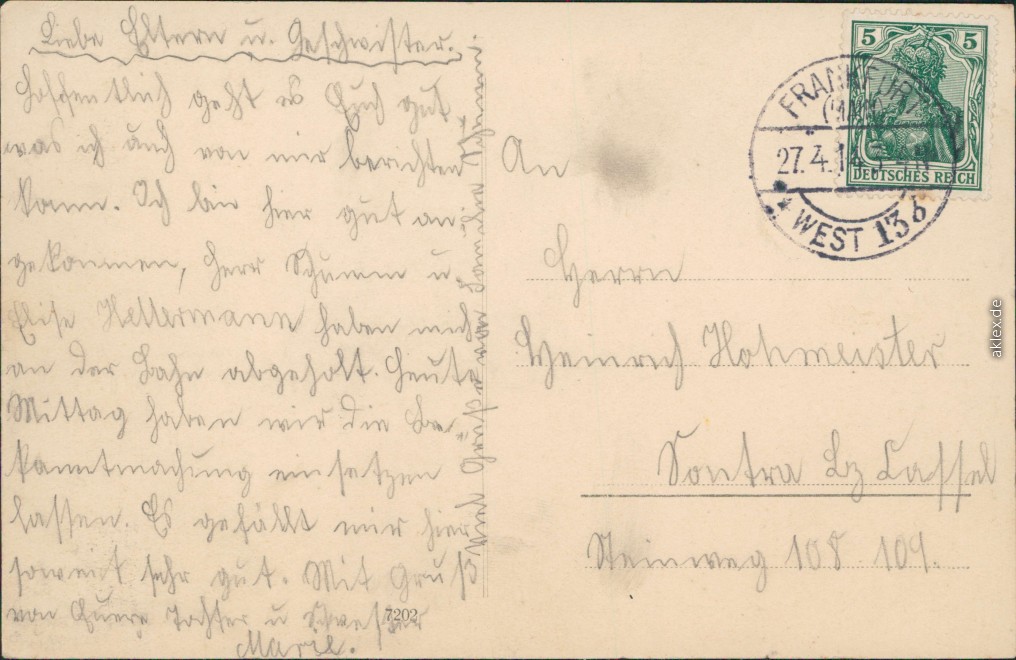 Liebe Eltern u. Geschwister.
Hoffentlich geht es Euch gut
was ich auch von mir berichten
kann. Ich bin hier gut an-
gekommen, Herr Schumm u.
Elise Hellermann haben mich
an der Bahn abgeholt. Heute
Mittag haben wir die Be-
kanntmachung einsetzen
lassen. Es gefällt mir hier
soweit sehr gut. Mit Gruß
von Eurer Tochter u Schwester
Marie.
7202
An
Herrn
Heinrich Hohmeister
Sontra Bz Cassel
Steinweg 108. 109.
5 5
DEUTSCHES REICH
FRANKFURT
(MAIN)
27.4.14
* WEST 13 b
aklex.de